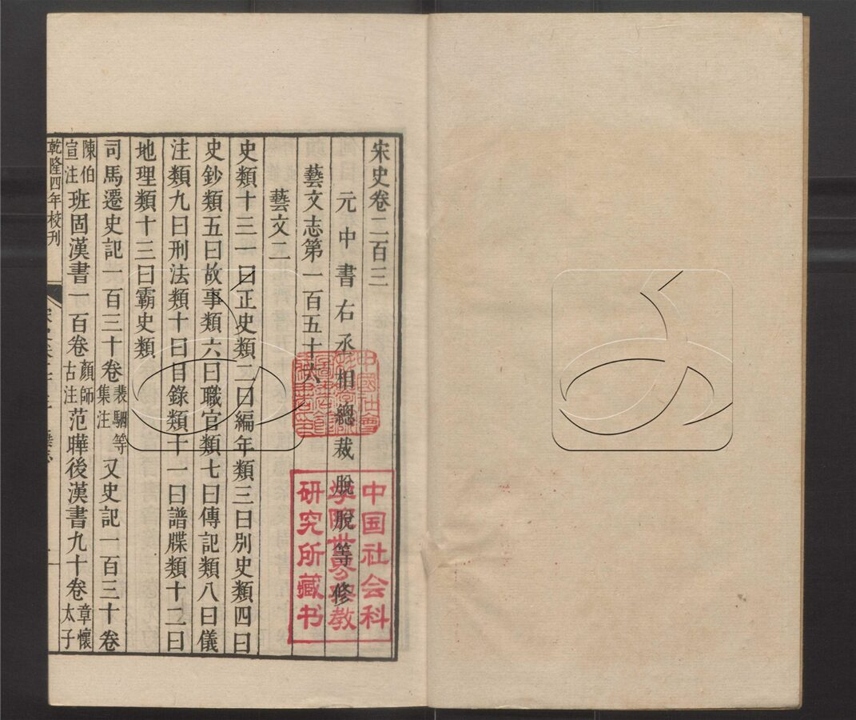 宋史卷二百三
元中書右丞相總裁脫脫等修
藝文志第一百五十六
藝文二
史類十三一曰正史類二曰編年類三曰別史類四曰
史鈔類五曰故事類六曰職官類七曰傳記類八曰儀
注類九曰刑法類十曰目錄類十一曰譜牒類十二曰
地理類十三曰霸史類
司馬遷史記一百三十卷裴駰等集注又史記一百三十卷
陳伯宣注班固漢書一百卷顏師古注范曄後漢書九十卷章懷太子
乾隆四年校刊
中国社会科
学院世界宗教
研究所藏书